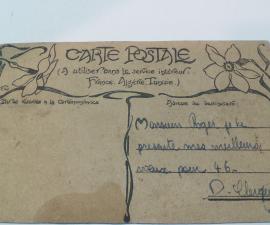 CARTE POSTALE
(A utiliser dans le service intérieur
France, Algérie, Tunisie.)
Partie réservée à la Correspondance
Adresse du destinataire
Monsieur Roger je te
presente mes meilleurs
vœux pour 46-